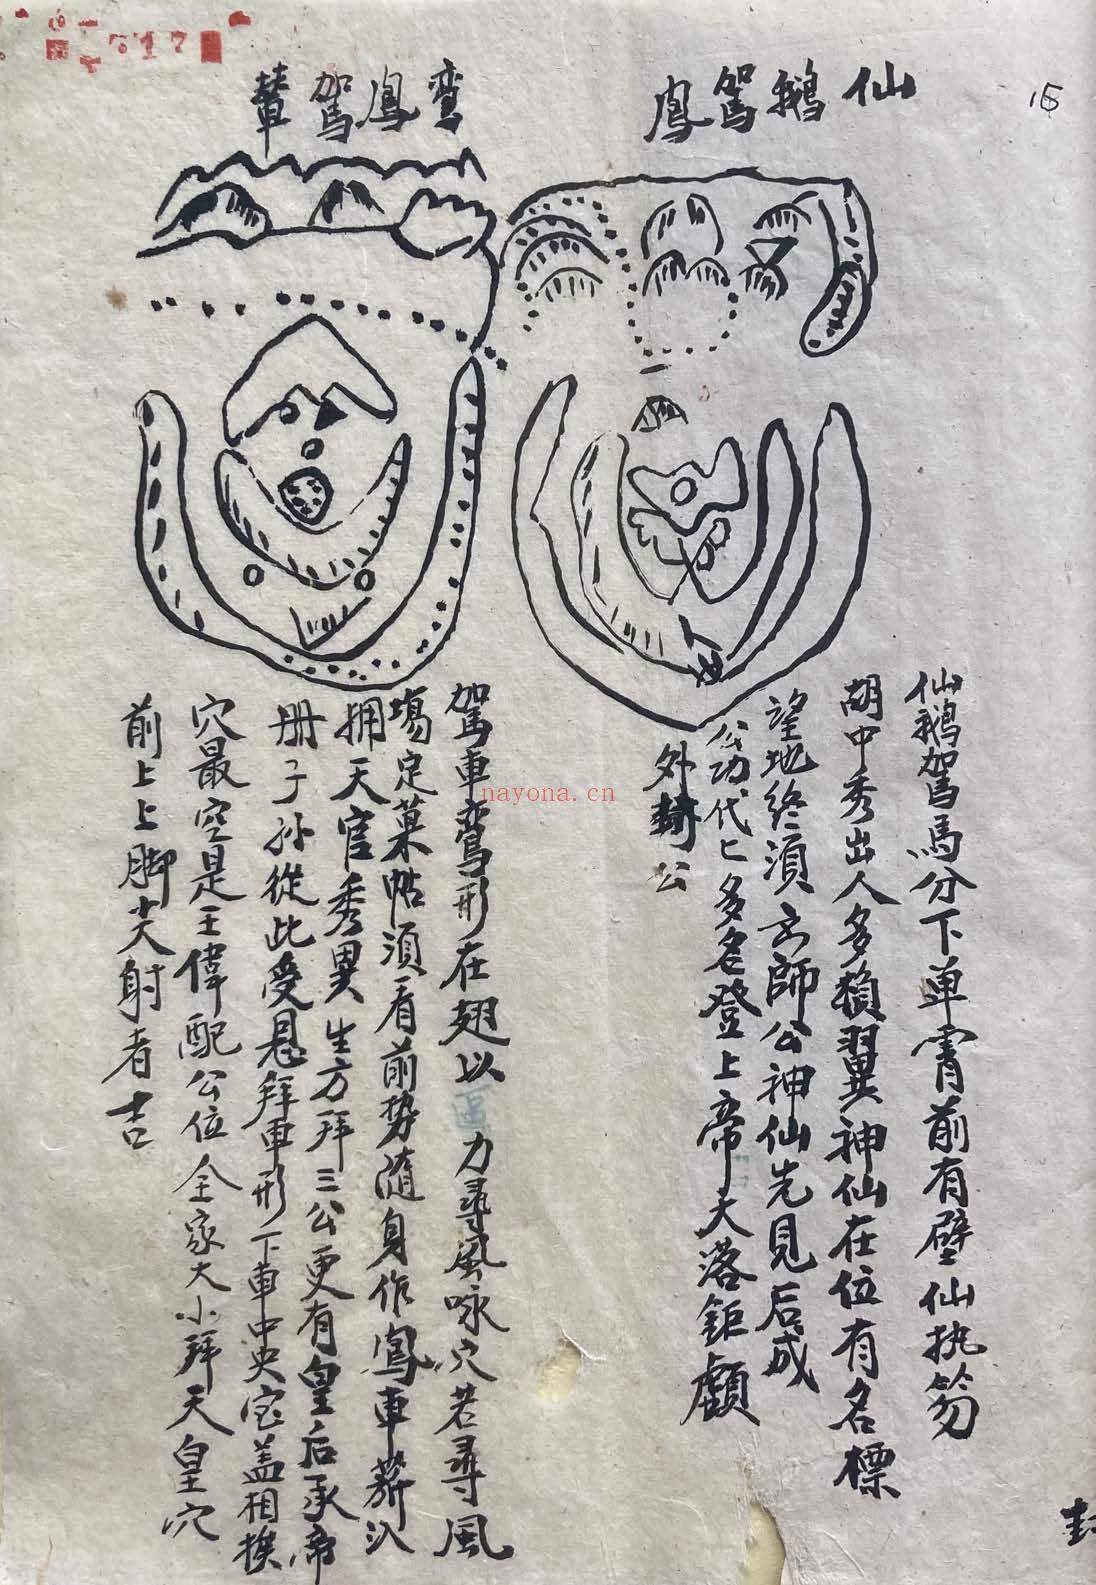 15
仙鵝駕鳳
仙鵝駕馬分下单霄前有壁仙执笏
胡中秀出人多賴翼神仙在位有名標
望地终須玄師公神仙先見后成
公功代亡多名登上帝大落鉅
外公
鸞鳳駕輦
駕車鸞形在翅以力尋風咏穴若尋風
塲定菓帖須看前势随身作鳳車葬
拥天官秀異生方拜三公更有皇后承帝
册子孙從此受恳拜車形下車中央宝盖相挨
穴最空是王偉配公位全家大小拜天皇穴
前上上脚尖射者吉
封
nayona.cn